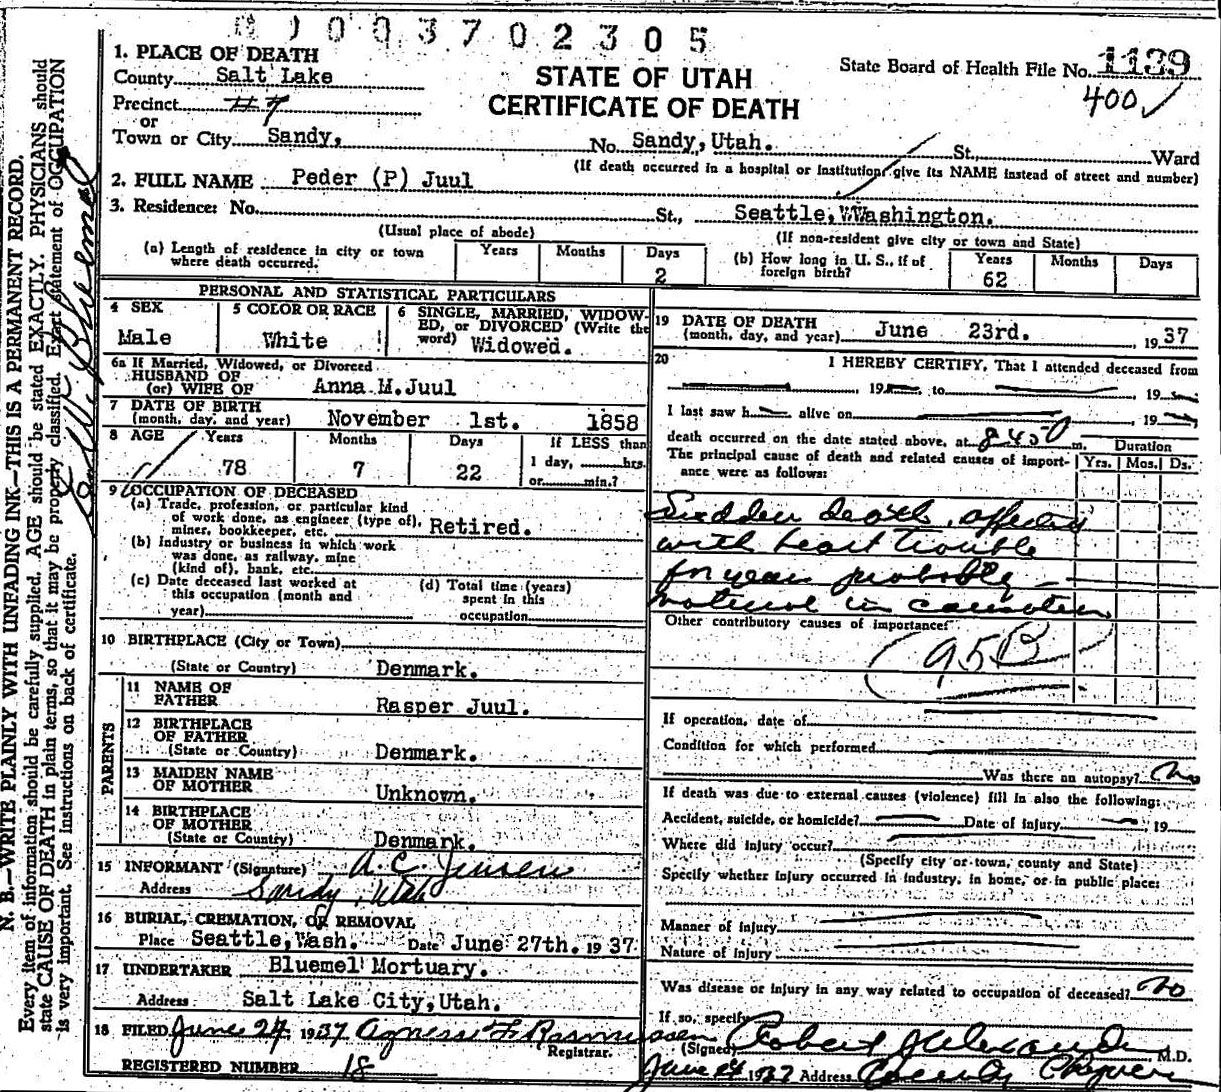 0003702305
1. PLACE OF DEATH
County Salt Lake
Precinct #7
or
Town or City Sandy,
STATE OF UTAH
CERTIFICATE OF DEATH
State Board of Health File No. 1139
400 ✓
No. Sandy, Utah. St., Ward
(If death occurred in a hospital or institution, give its NAME instead of street and number)
2. FULL NAME Peder (P) Juul
3. Residence: No. St., Seattle,WWashington.
(Usual place of abode) (If non-resident give city or town and State)
(a) Length of residence in city or town where death occurred. Years Months Days 2
(b) How long in U. S., if of foreign birth? Years 62 Months Days
PERSONAL AND STATISTICAL PARTICULARS
4 SEX Male
5 COLOR OR RACE White
6 SINGLE, MARRIED, WIDOWED, or DIVORCED (Write the word) Widowed.
6a If Married, Widowed, or Divorced
HUSBAND OF
(or) WIFE OF Anna M.Juul
7 DATE OF BIRTH
(month, day, and year) November 1st. 1858
8 AGE Years 78 Months 7 Days 22
If LESS than
1 day, hrs.
or min.?
9 OCCUPATION OF DECEASED
(a) Trade, profession, or particular kind
of work done, as engineer (type of),
miner, bookkeeper, etc. Retired.
(b) Industry or business in which work
was done, as railway, mine
(kind of), bank, etc.
(c) Date deceased last worked at
this occupation (month and
year)
(d) Total time (years)
spent in this
occupation
10 BIRTHPLACE (City or Town)
(State or Country) Denmark.
PARENTS
11 NAME OF
FATHER Rasper Juul.
12 BIRTHPLACE
OF FATHER
(State or Country) Denmark.
13 MAIDEN NAME
OF MOTHER Unknown.
14 BIRTHPLACE
OF MOTHER
(State or Country) Denmark.
15 INFORMANT (Signature) A. C. Jensen
Address Sandy, Utah
16 BURIAL, CREMATION, OR REMOVAL
Place Seattle,Wash. Date June 27th. 1937.
17 UNDERTAKER Bluemel Mortuary.
Address Salt Lake City,Utah.
18 FILED June 24 1937 Agness F. Rasmussen
Registrar.
REGISTERED NUMBER 18
19 DATE OF DEATH
(month, day, and year) June 23rd. , 1937
20 I HEREBY CERTIFY, That I attended deceased from
, 19 to , 19
I last saw h alive on , 19
death occurred on the date stated above, at 8450 m.
The principal cause of death and related causes of importance were as follows:
Duration
Yrs. Mos. Ds.
Sudden death, affected
with heart trouble
for years probably
natural in causation
Other contributory causes of importance:
(95B)
If operation, date of
Condition for which performed
Was there an autopsy? No
If death was due to external causes (violence) fill in also the following:
Accident, suicide, or homicide? Date of injury , 19
Where did injury occur?
(Specify city or town, county and State)
Specify whether injury occurred in industry, in home, or in public place:
Manner of injury
Nature of injury
Was disease or injury in any way related to occupation of deceased? No
If so, specify
(Signed) Robert J Alexander M.D.
June 24 1937 Address County Physician
N. B.—WRITE PLAINLY WITH UNFADING INK—THIS IS A PERMANENT RECORD.
Every item of information should be carefully supplied. AGE should be stated EXACTLY. PHYSICIANS should
state CAUSE OF DEATH in plain terms, so that it may be properly classified. Exact statement of OCCUPATION
is very important. See instructions on back of certificate.